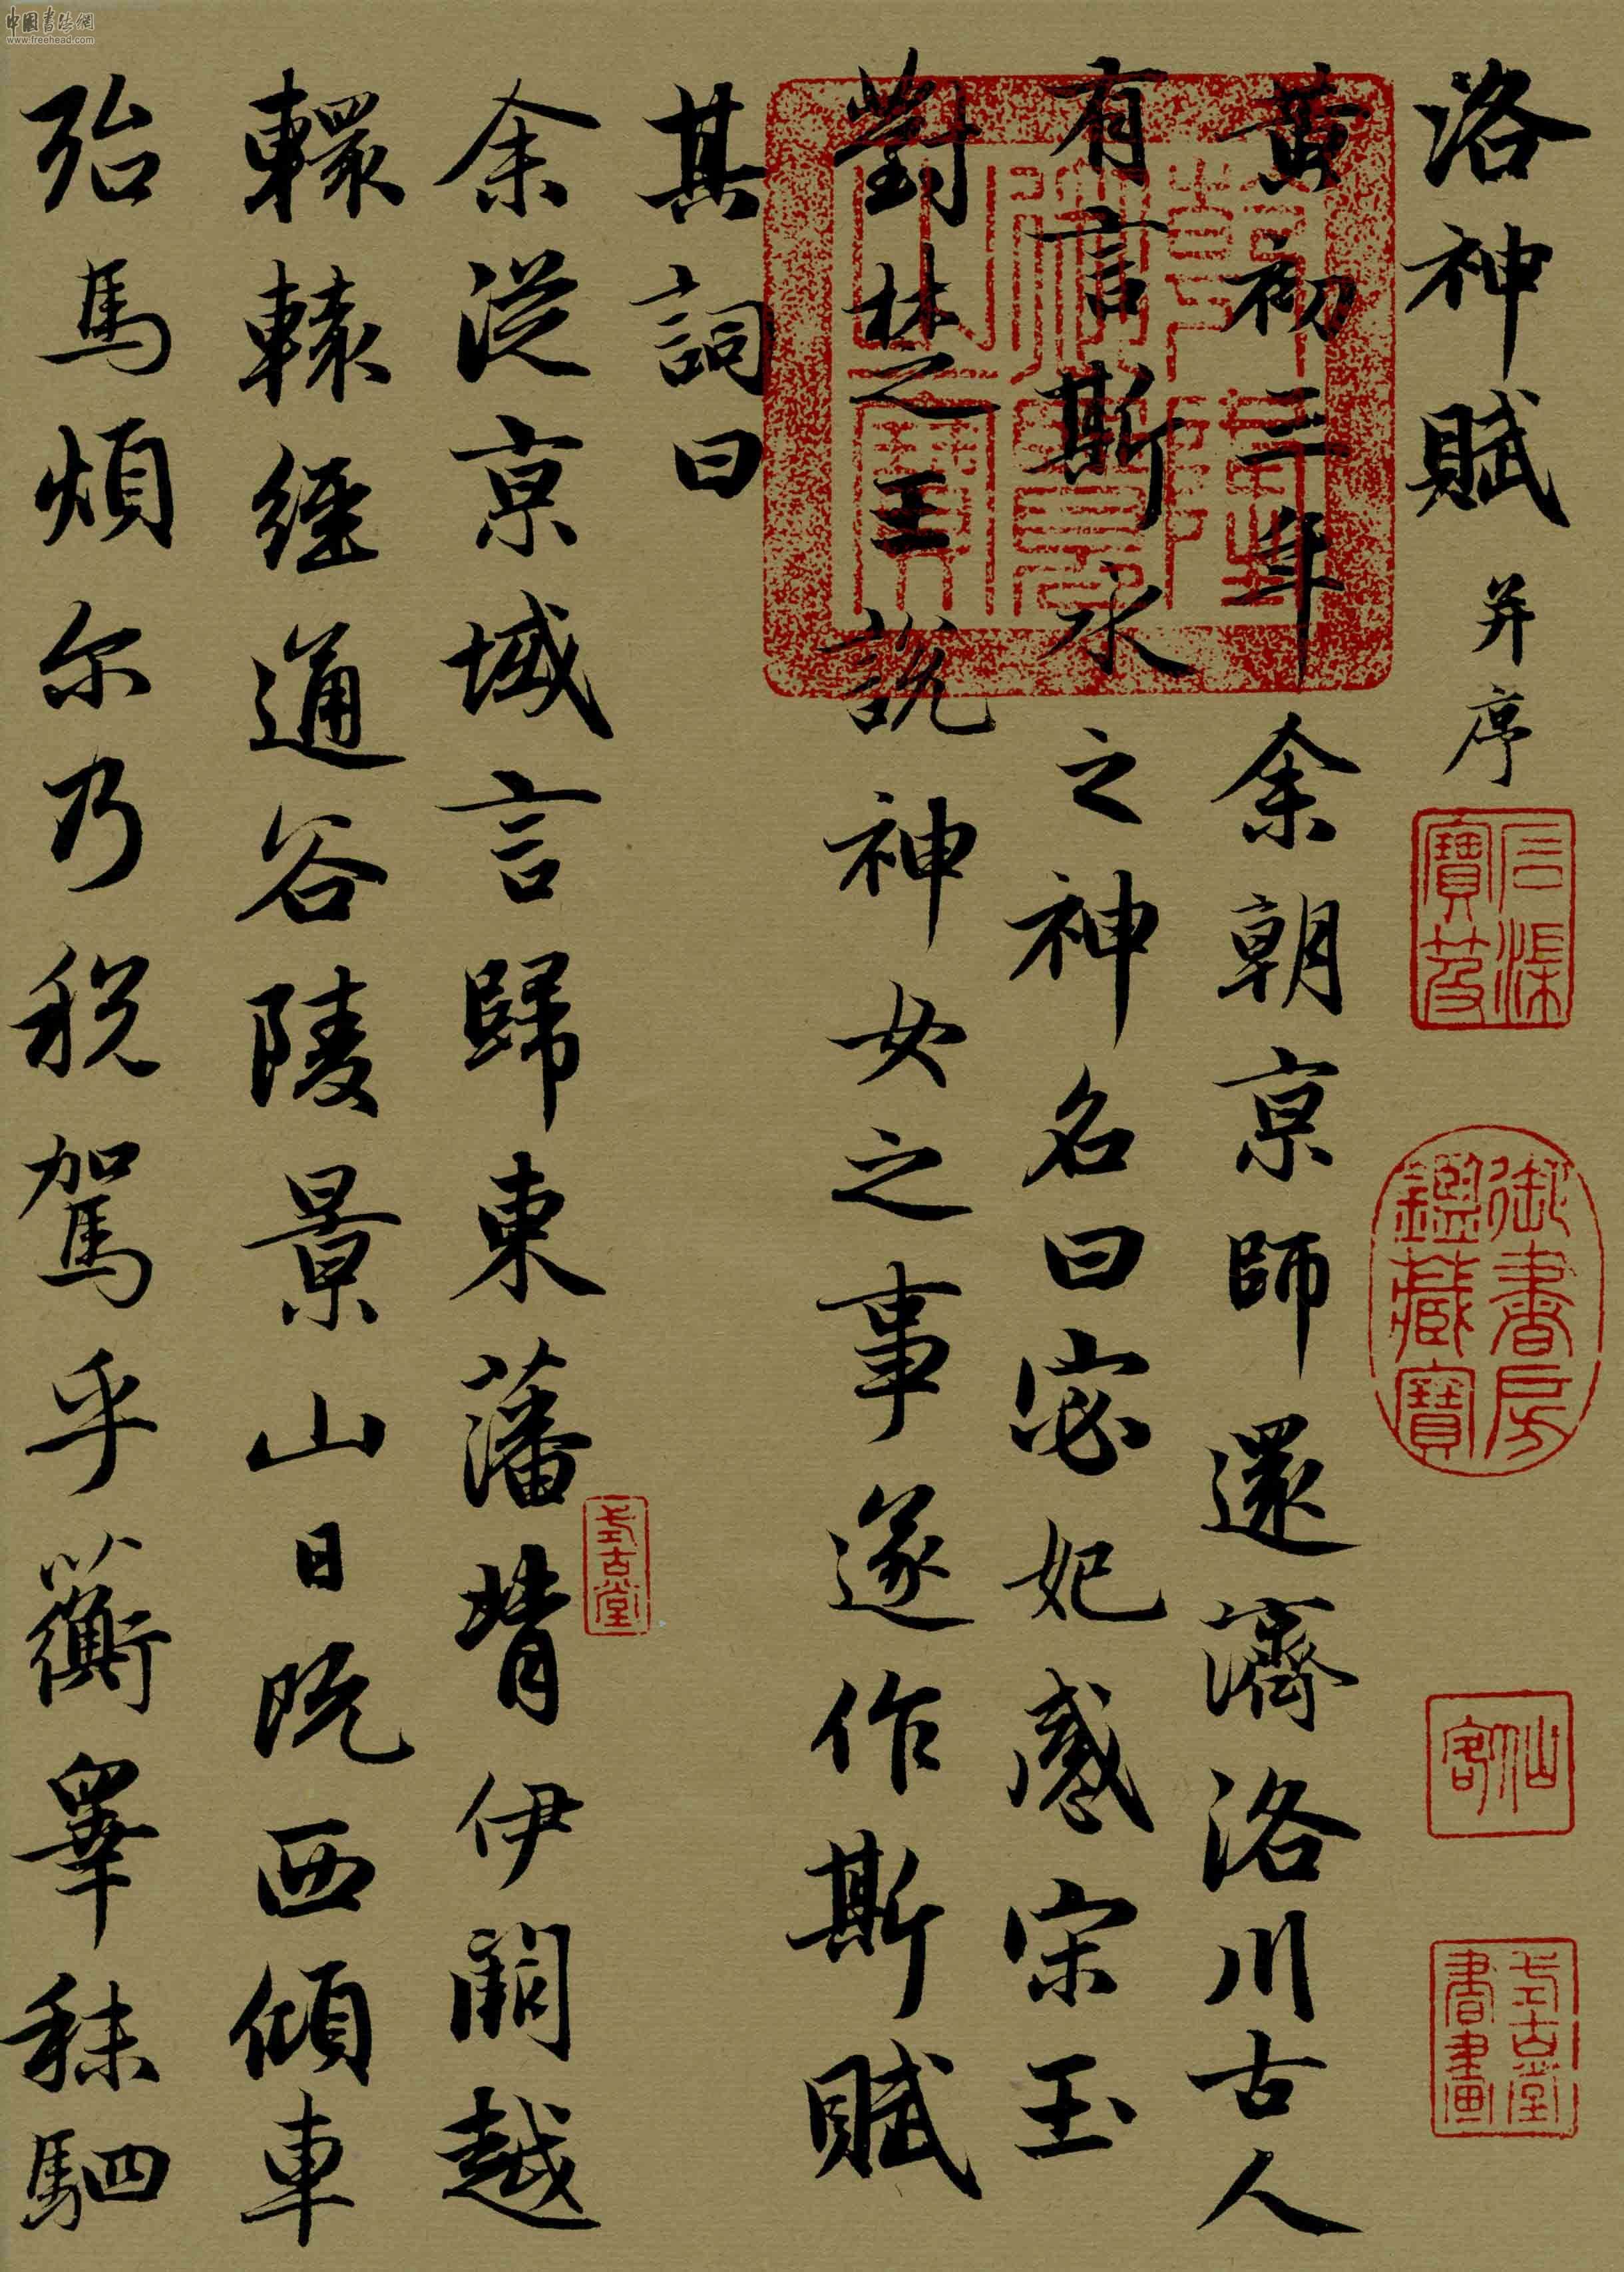 洛神賦 并序
黃初三年余朝京師還濟洛川古人
有言斯水之神名曰宓妃感宋玉
對楚之王說神女之事遂作斯賦
其詞曰
余從京域言歸東藩背伊闕越
轘轅經通谷陵景山日既西傾車
殆馬煩尔乃稅駕乎蘅皋秣駟
石渠寶笈
御書房鑑藏寶
仙客
式古堂書畫
式古堂
中國書法網
www.freehead.com